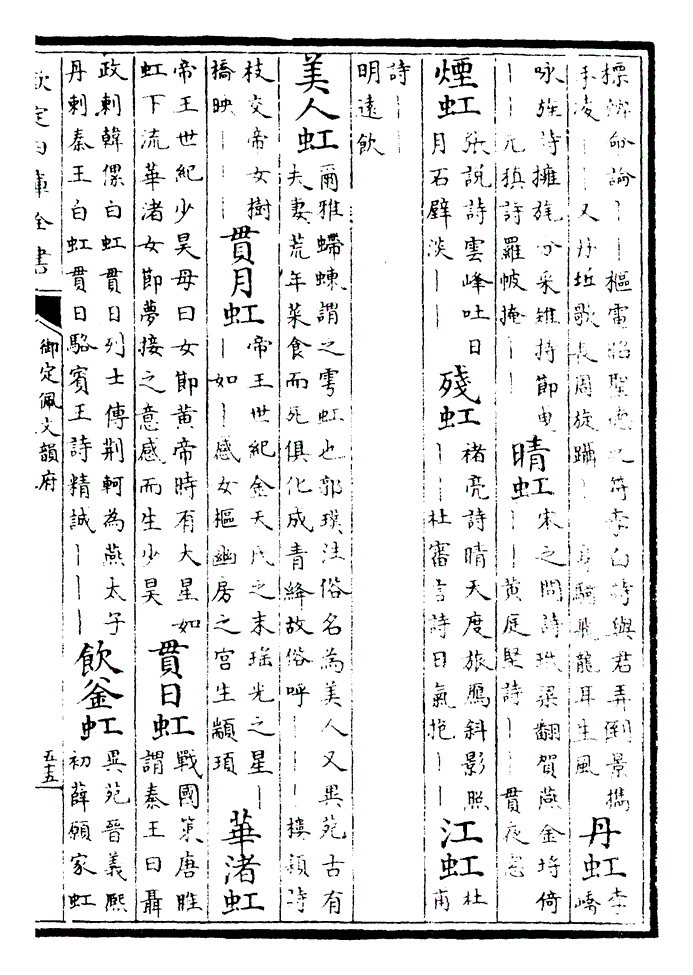 標辨命論｜｜樞電昭聖德之符李白詩與君弄倒景攜
手凌｜｜又丹丘歌長周旋躡｜｜身騎飛龍耳生風
丹虹
李
嶠
咏旌詩擁旄分采雉持節曳
｜｜元稹詩羅帔掩｜｜
晴虹
宋之問詩珠梁翻賀燕金埒倚
｜｜黃庭堅詩｜｜貫夜
煙虹
張說詩雲峰吐日
月石壁淡｜｜
殘虹
褚亮詩晴天度旅鴈斜影照
｜｜杜審言詩日氣抱｜｜
江虹
杜
甫
詩｜｜
明遠飲
美人虹
爾雅螮蝀謂之雩虹也郭璞注俗名為美人又異苑古有
夫妻荒年菜食而死俱化成青絳故俗呼｜｜｜樓穎詩
枝交帝女樹
橋映｜｜｜
貫月虹
帝王世紀金天氏之末瑤光之星｜
｜如｜感女樞幽房之宮生顓頊
華渚虹
帝王世紀少昊母曰女節黃帝時有大星如
虹下流華渚女節夢接之意感而生少昊
貫日虹
戰國策唐雎
謂秦王曰聶
政刺韓傀白虹貫日列士傳荆軻為燕太子
丹刺秦王白虹貫日駱賓王詩精誠｜｜｜
飲釜虹
異苑晉義熙
初薛願家虹
欽定四庫全書
御定佩文韻府
五十五